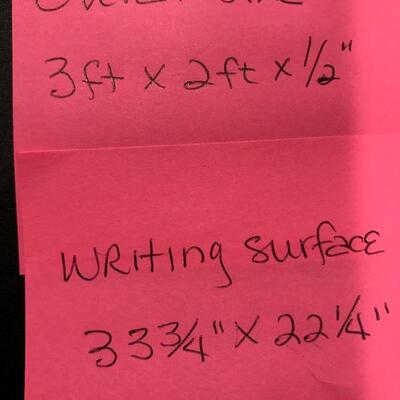 3ft x 2ft x 1/2"
WRiting surface
33 3/4" x 22 1/4"